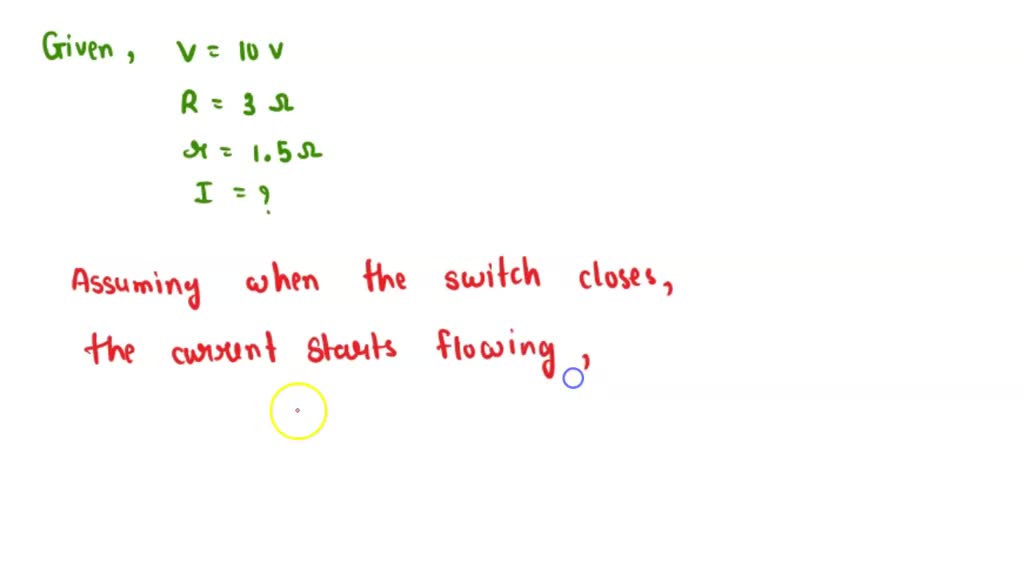 Given, V = 10 V
R = 3 Ω
r = 1.5 Ω
I = ?
Assuming when the switch closes,
the current starts flowing,